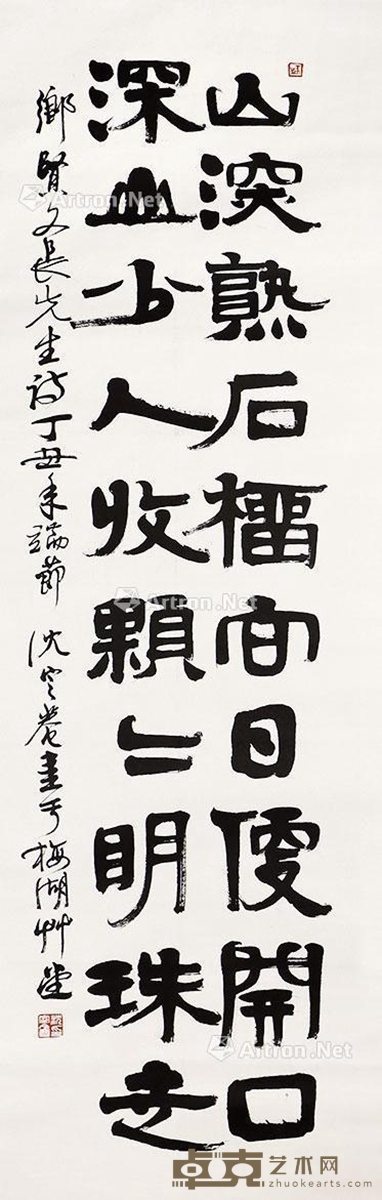 山深熟石榴向日便開口
深山少人收顆〻明珠走
鄉賢文長先生詩丁丑年端節 沈定菴書于梅湖艸堂
Artron.Net
Artron.Net
Artron.Net
Artron.Net
Artron.Net
卓克艺术网
zhuokearts.com